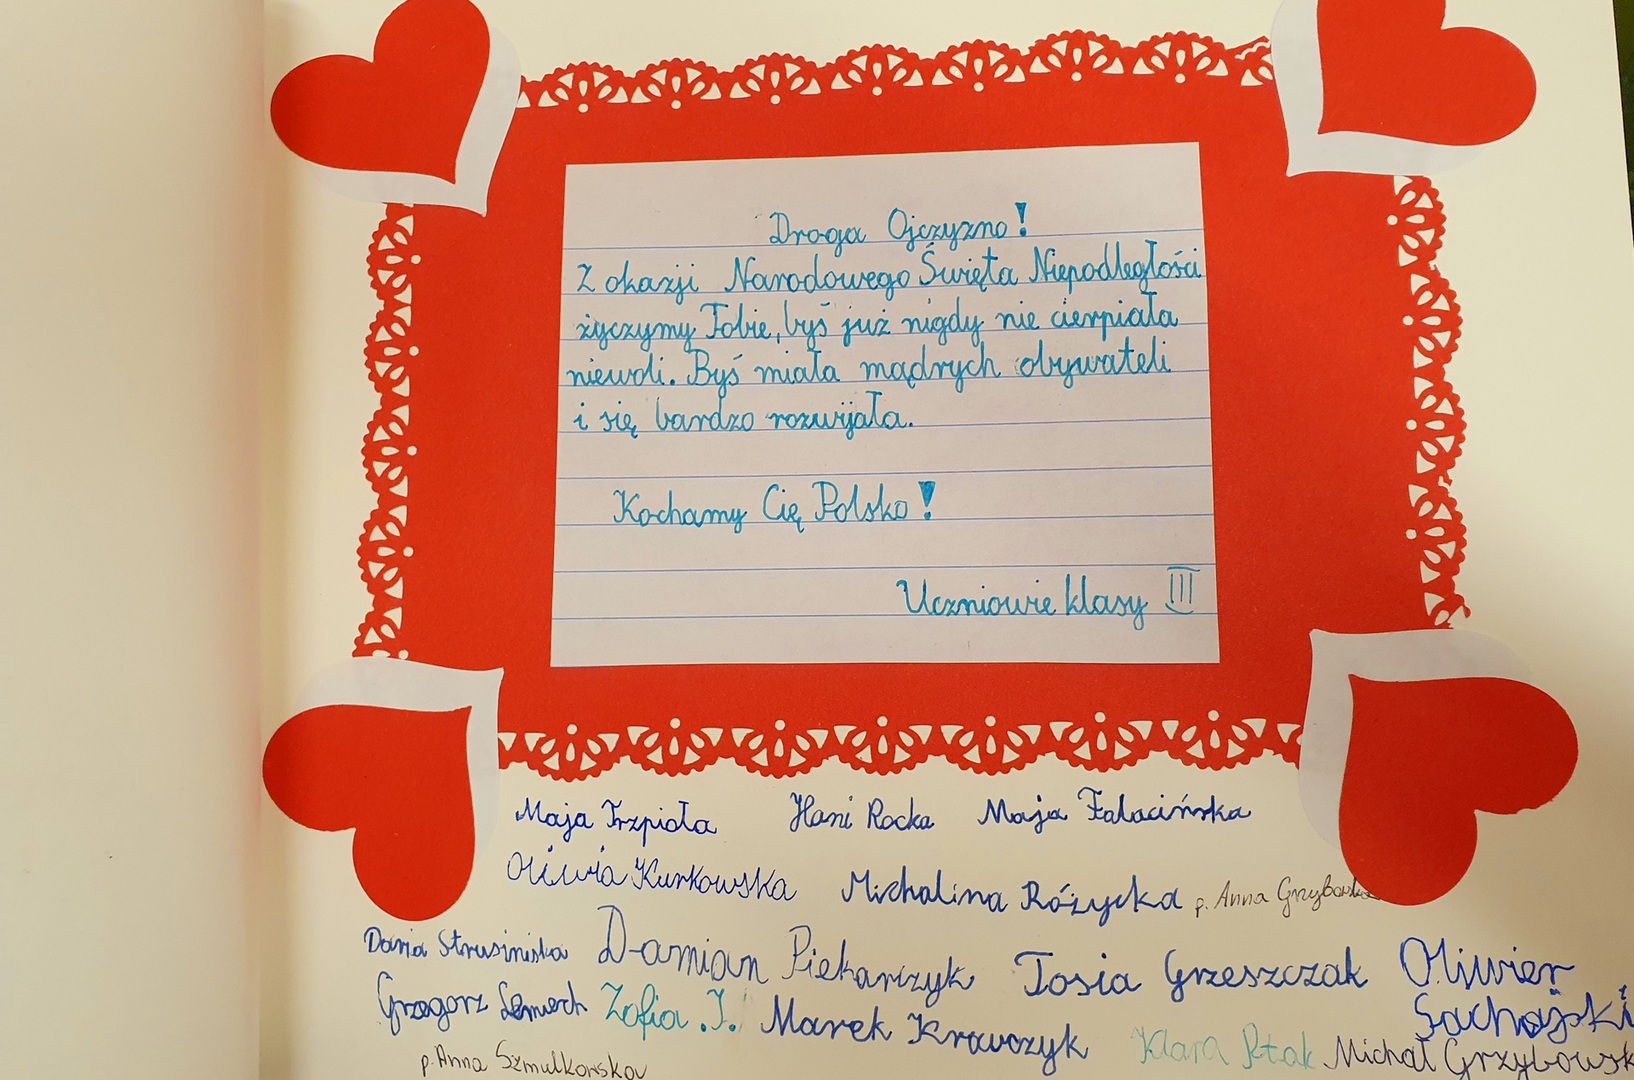 Droga Ojczyzno!
Z okazji Narodowego Święta Niepodległości
życzymy Tobie, byś już nigdy nie cierpiała
niewoli. Byś miała mądrych obywateli
i się bardzo rozwijała.
Kochamy Cię Polsko!
Uczniowie klasy III
Maja Trzpioła Hani Rocka Maja Fałacińska
Oliwia Kurkowska Michalina Różycka p. Anna Grzybowska
Daria Strusińska Damian Piekarczyk Tosia Grzeszczak Oliwier
Grzegorz Zofia J. Marek Krawczyk Klara Ptak Michał
p. Anna Szmulkowska